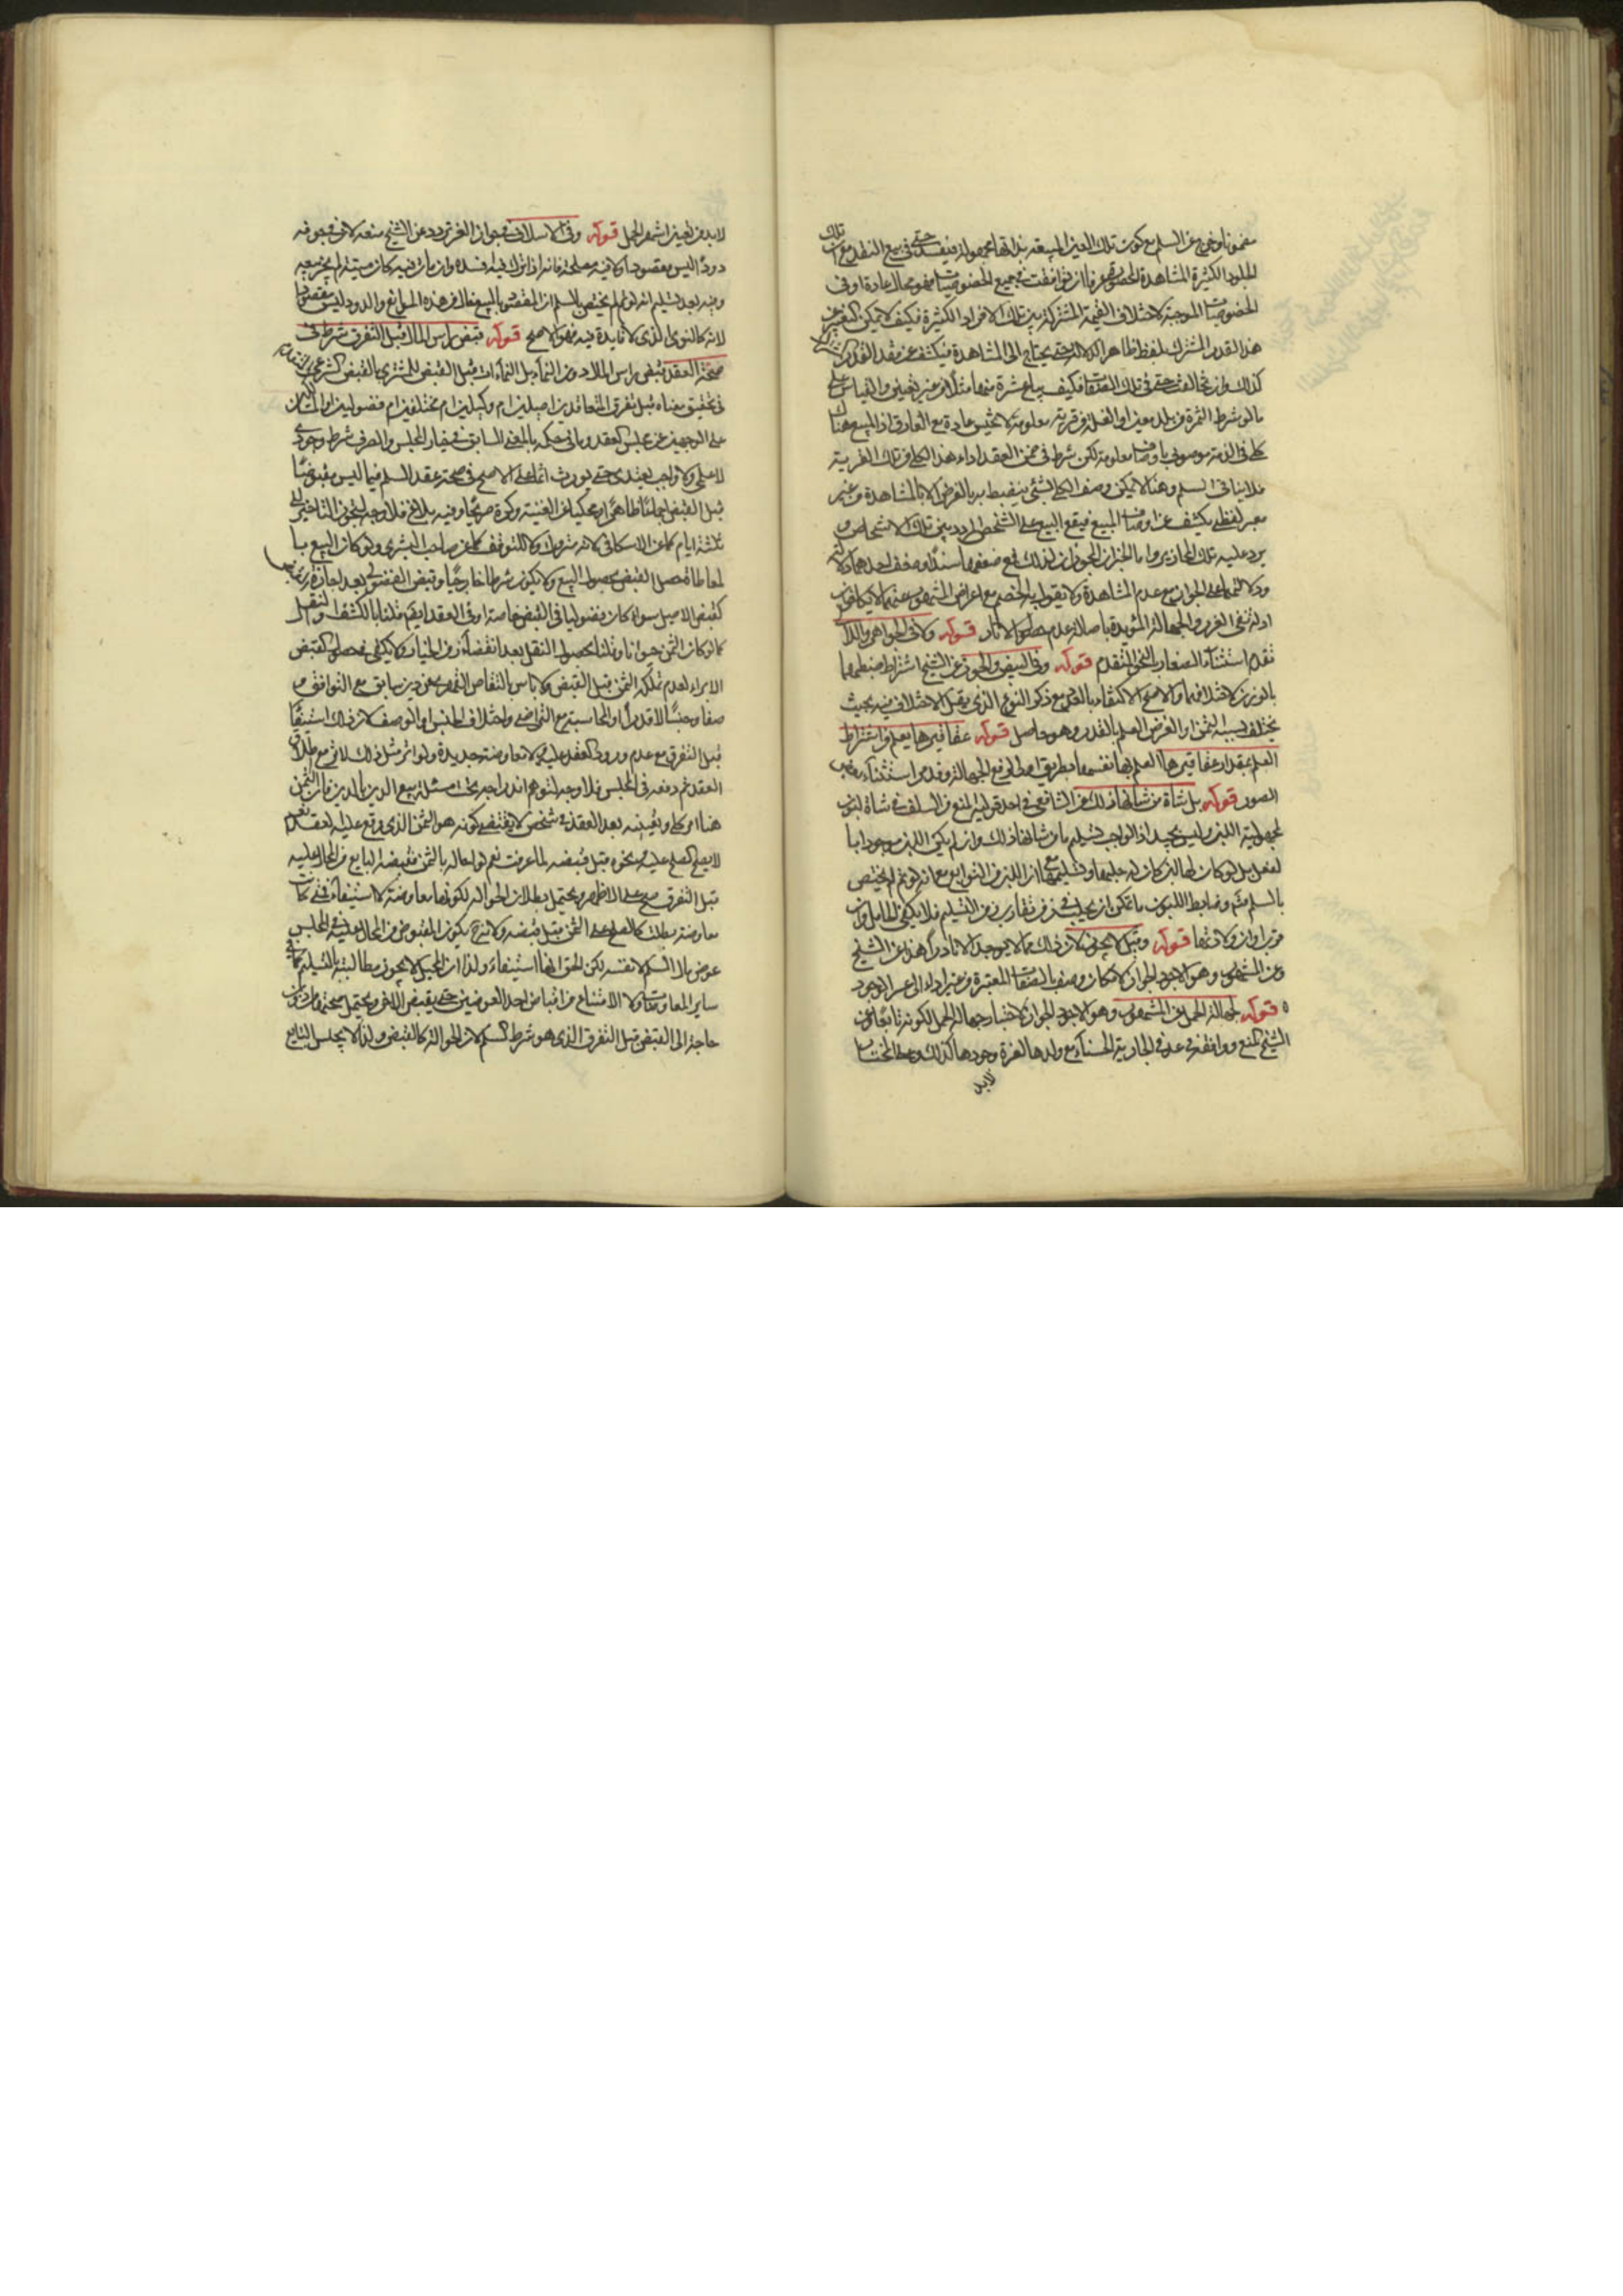 مضمونا وخرج عن السلم مع كون تلك العين المبيعة بذاتها مجهولة فيفسد حتى في بيع النقد مع ان تلك
الجلود الكثيرة المشاهدة المحصورة عرفا ان توافقت في جميع الخصوصيات فهو محال عادة او في
الخصوصيات الموجبة لاختلاف القيمة المشتركة بين تلك الافراد الكثيرة فكيف لا يمكن التعبير عن
هذا القدر المشترك بلفظ ظاهر الدلالة حتى يحتاج الى المشاهدة فيكشف عن هذا القدر المشترك
كذلك وان تخالفت حتى في تلك الصفة فكيف يباع عشرة منها مثلا من غير تعيين والقياس على
ما لو شرط الثمرة من بلد معين او الغلة من قرية معلومة لا تخيس عادة مع الفارق اذ المبيع هناك
كلي في الذمة موصوف باوصاف معلومة لكن شرط في ضمن العقد اداء هذا الكلي من تلك القرية
فلا ينافي السلم وهنا لا يمكن وصف الكلي بشيء ينضبط به بالفرض الا بالمشاهدة من غير
معبر لفظي يكشف عن اوصاف المبيع فيقع البيع على الشخص المردد بين تلك الاشخاص و
يرد عليه تلك المحاذير واما الخبران المجوزان لذلك فمع ضعفهما سندا وضعف احدهما دلالة
ودلالتهما على الجواز مع عدم المشاهدة ولا يقول به الخصم مع اعراض المشهور عنهما لا يكافئان
ادلة نفي الغرر والجهالة المؤيدة باصالة عدم حصول الاثار قوله ولا في الجواهر واللآلي
تقدم استثناء الصغار بالنحو المتقدم قوله وفي البيض والجوز عن الشيخ اشتراط ضبطهما
بالوزن لاختلافهما والاصح الاكتفاء بالعدد مع ذكر النوع الذي يقل الاختلاف فيه بحيث
يختلف بسببه الثمن اذ الغرض العلم بالقدر وهو حاصل قوله عقاقيرها يعلم واشتراط
العلم بمقدار عقاقيرها العلم بها نفسها بطريق اولى لرفع الجهالة وقد مر استثناء بعض
الصور قوله بل شاة من شانها ذلك عن الشافعي في احد قوليه المنع من السلف في شاة لبون
لمجهولية اللبن وليس بجيد اذ الواجب تسليم ما من شانها ذلك وان لم يكن اللبن موجودا با
لفعل بل لو كان لها لبن كان له حلبها وتسليمها مع ان اللبن من التوابع مع انه لو تم لم يختص
بالسلم ثم وضابط اللبون ما يمكن ان يحلب في زمن تقارب زمن التسليم فلا يكفي الحامل وان
قرب اوان ولادتها قوله وقيل لا يجوز لان ذلك مما لا يوجد الا نادرا هذا عن الشيخ
وعن المشهور وهو الاجود الجواز لامكان وصفه بالصفات المعتبرة من غير اداء الى عسر الوجود
قوله لجهالة الحمل عن المشهور وهو الاجود الجواز لاغتفار جهالة الحمل لكونه تابعا وعن
الشيخ المنع ووافقه في عد في الجارية الحسناء مع ولدها لعزة وجودها كذلك وعلى المختار
لابد
لابد من تعيين اشهر الحمل قوله وفي الاسلاف في جواز القز تردد عن الشيخ منعه لان في جوفه
دودا ليس مقصودا ولا فيه مصلحة فانه اذا ترك فيه افسده وان مات فيه كان ميتة لم يجز بيعه
وفيه بعد تسليم انه لو تم لم يختص بالسلم ان المقصود بالبيع خال من هذه الموانع والدود ليس مقصودا
لانه كالنوى الذي لا فايدة فيه فهو الاصح قوله قبض راس المال قبل التفرق شرط في
صحة العقد فقبض راس المال دون النماء بل النماءات قبل القبض للمشتري بالقبض الشرعي المتقدم
في تحقيق معناه قبل تفرق المتعاقدين اصيلين ام وكيلين ام مختلفين ام فضوليين او المالكان
على الوجهين عن مجلس العقد وما في حكمه بالمعنى السابق في خيار المجلس والصرف شرط وجودي
لا علمي ولا واجب تعبدي حتى يورث اثما على الاصح في صحة عقد السلم فيما ليس مقبوضا
قبل القبض اجماعا ظاهرا محكيا عن الغنية وكرة صريحا وفيه بلاغ فلا وجه لتجويز التاخير الى
ثلثة ايام كما عن الاسكافي لانه متروك ولا للتوقف كما عن صاحب البشرى ولو كان البيع با
لمعاطاة حصل القبض بحصول البيع ولا يكون شرطا خارجيا وقبض الفضولي بعد اجازة
كقبض الاصيل سواء كان فضوليا في القبض خاصة او في العقد ايضا قلنا بالكشف او النقل
كما لو كان الثمن حيوانا وقلنا بحصول النقل بعد انقضاء زمن الخيار ولا يكفي في حصول القبض
الابراء لعدم تملكه الثمن قبل القبض ولا باس بالتقاص القهري عن دين سابق مع التوافق و
صفا وجنسا لا قدرا او المحاسبة مع التراضي واختلاف الجنس او الوصف لان ذلك استيفاء
قبل التفرق مع عدم ورود العقد عليه لا معاوضة جديدة ولو اثر مثل ذلك لاثر مع اطلاق
العقد ثم دفعه في المجلس فلا وجه لتوهم اندراجه تحت مسئلة بيع الدين بالدين فان الثمن
هنا امر كلي وتعيينه بعد العقد في شخص لا يقتضي كونه هو الثمن الذي وقع عليه العقد نعم
لا يصح الصلح عليه ونحوه قبل قبضه لما عرفت نعم لو احاله بالثمن فقبضه البايع من المحال عليه
قبل التفرق صح على الاظهر ويحتمل بطلان الحوالة لكونها معاوضة لا استيفاء فمتى كانت
معاوضة بطلت كالصلح على الثمن قبل قبضه ولانه ح يكون المقبوض من المحال عليه في المجلس
عوض مال السلم لا نفسه لكن الحق انها استيفاء ولذا ان المحيل لا يجوز مطالبته بالتسليم كما في
ساير المعاوضات ولا الامتناع من اقباض احد العوضين حتى يقبض الاخر ويحتمل صحتها من دون
حاجة الى القبض قبل التفرق الذي هو شرط السلم لان الحوالة كالقبض ولذا لا يحبس البايع